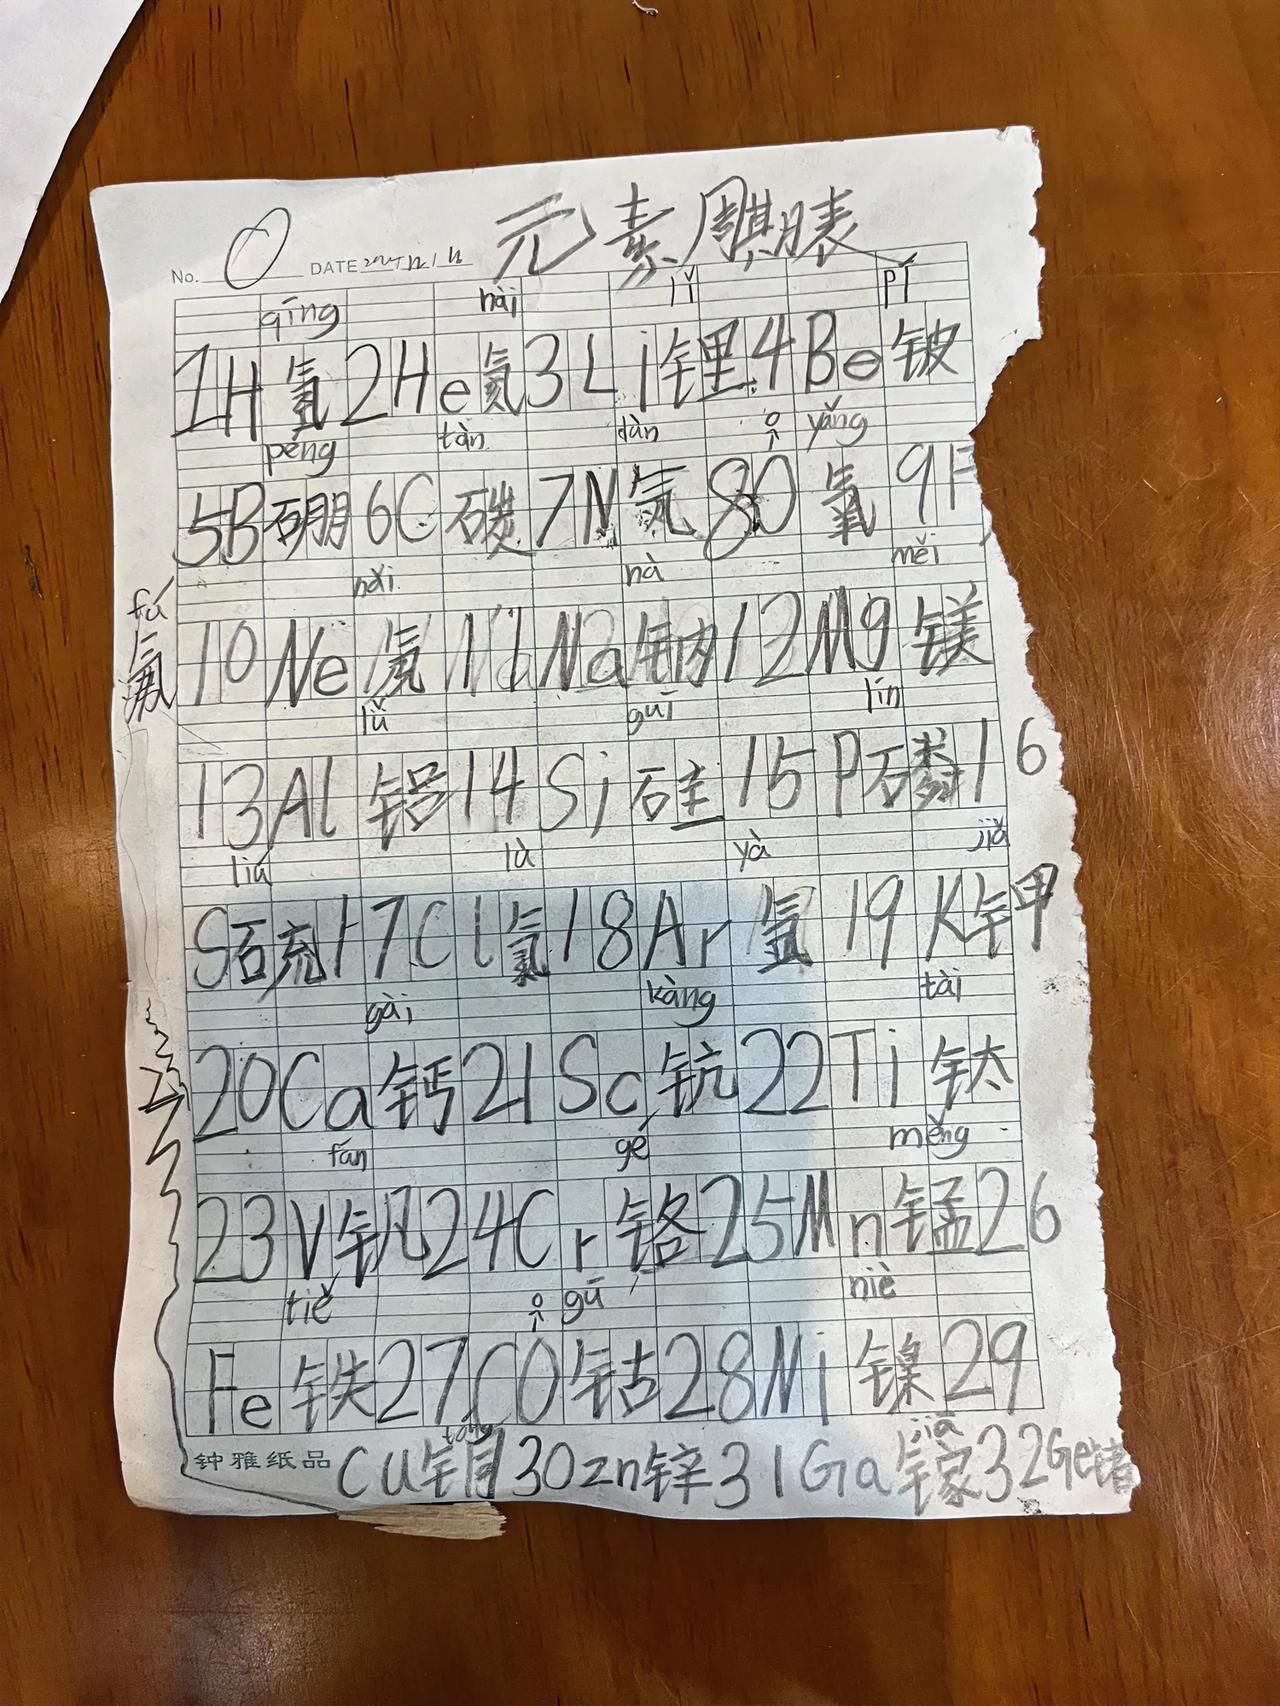 元素周期表
No. 0 DATE
qīng hài lǐ pí
1H 氢 2He 氦 3Li 锂 4Be 铍
péng tàn dàn o yǎng
5B 硼 6C 碳 7N 氮 8O 氧 9F
fú nǎi nà měi
氟 10 Ne 氖 11 Na 钠 12 Mg 镁
lǚ guī lín
13 Al 铝 14 Si 硅 15 P 磷 16
liú lǜ yà jiǎ
S 硫 17 Cl 氯 18 Ar 氩 19 K 钾
gài kàng tài
20 Ca 钙 21 Sc 钪 22 Ti 钛
fán gé měng
23 V 钒 24 Cr 铬 25 Mn 锰 26
tiě o gǔ niè
Fe 铁 27 CO 钴 28 Ni 镍 29
tóng jiā
钟雅纸品 Cu 铜 30 zn 锌 31 Ga 镓 32 Ge 锗